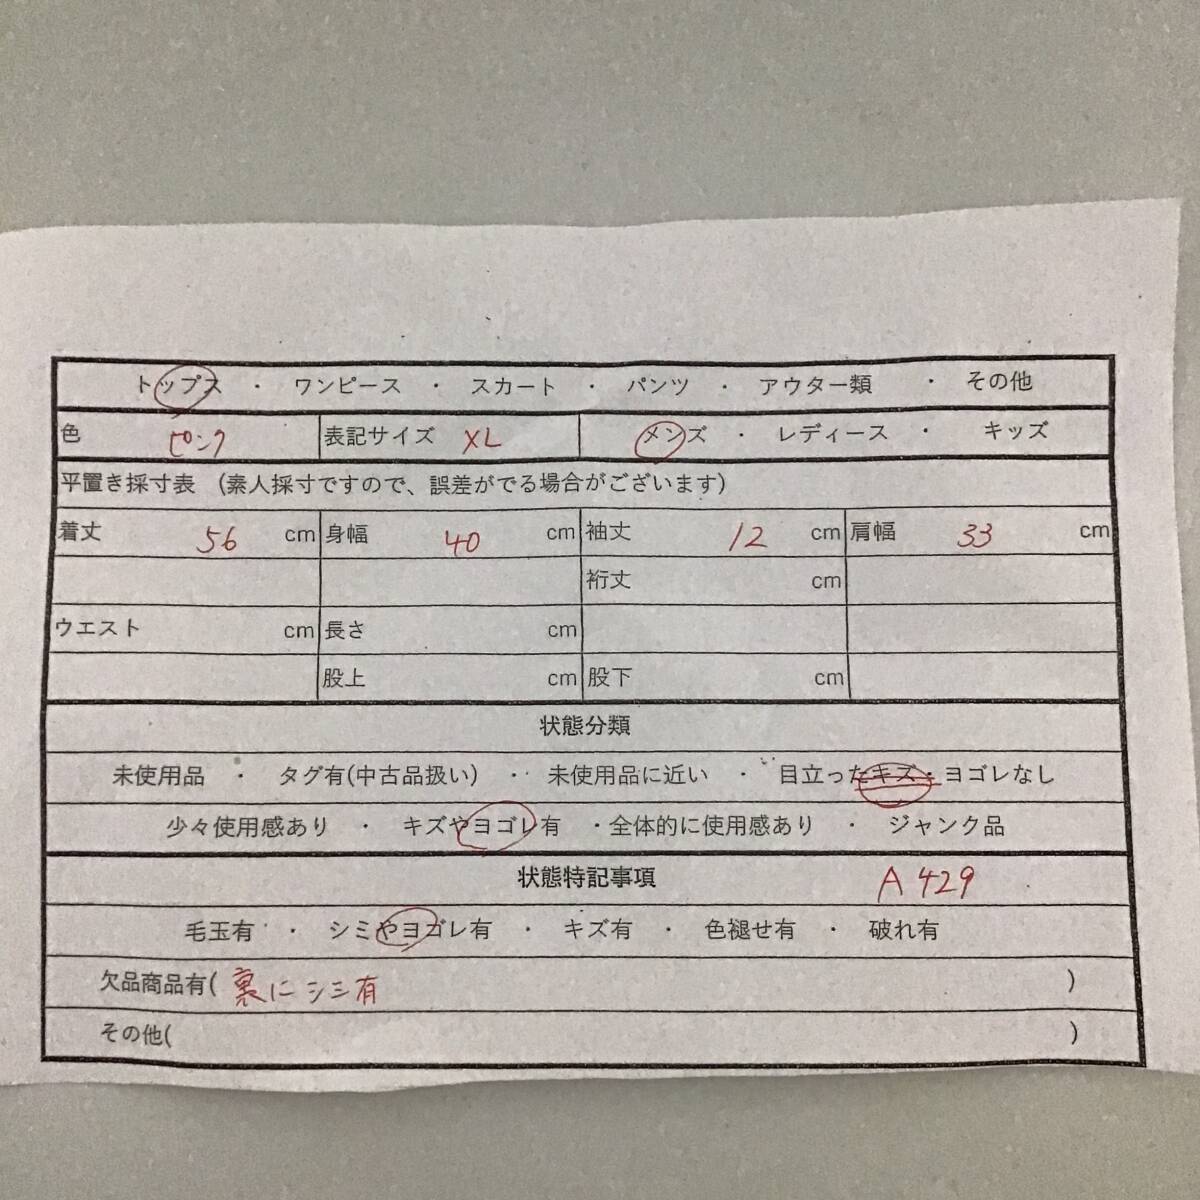 トップス ・ ワンピース ・ スカート ・ パンツ ・ アウター類 ・ その他
色 ピンク 表記サイズ XL メンズ ・ レディース ・ キッズ
平置き採寸表 (素人採寸ですので、誤差がでる場合がございます)
着丈 56 cm 身幅 40 cm 袖丈 12 cm 肩幅 33 cm
裄丈 cm
ウエスト cm 長さ cm
股上 cm 股下 cm
状態分類
未使用品 ・ タグ有(中古品扱い) ・ 未使用品に近い ・ 目立ったキズ・ヨゴレなし
少々使用感あり ・ キズやヨゴレ有 ・全体的に使用感あり ・ ジャンク品
状態特記事項 A429
毛玉有 ・ シミやヨゴレ有 ・ キズ有 ・ 色褪せ有 ・ 破れ有
欠品商品有( 裏にシミ有 )
その他( )